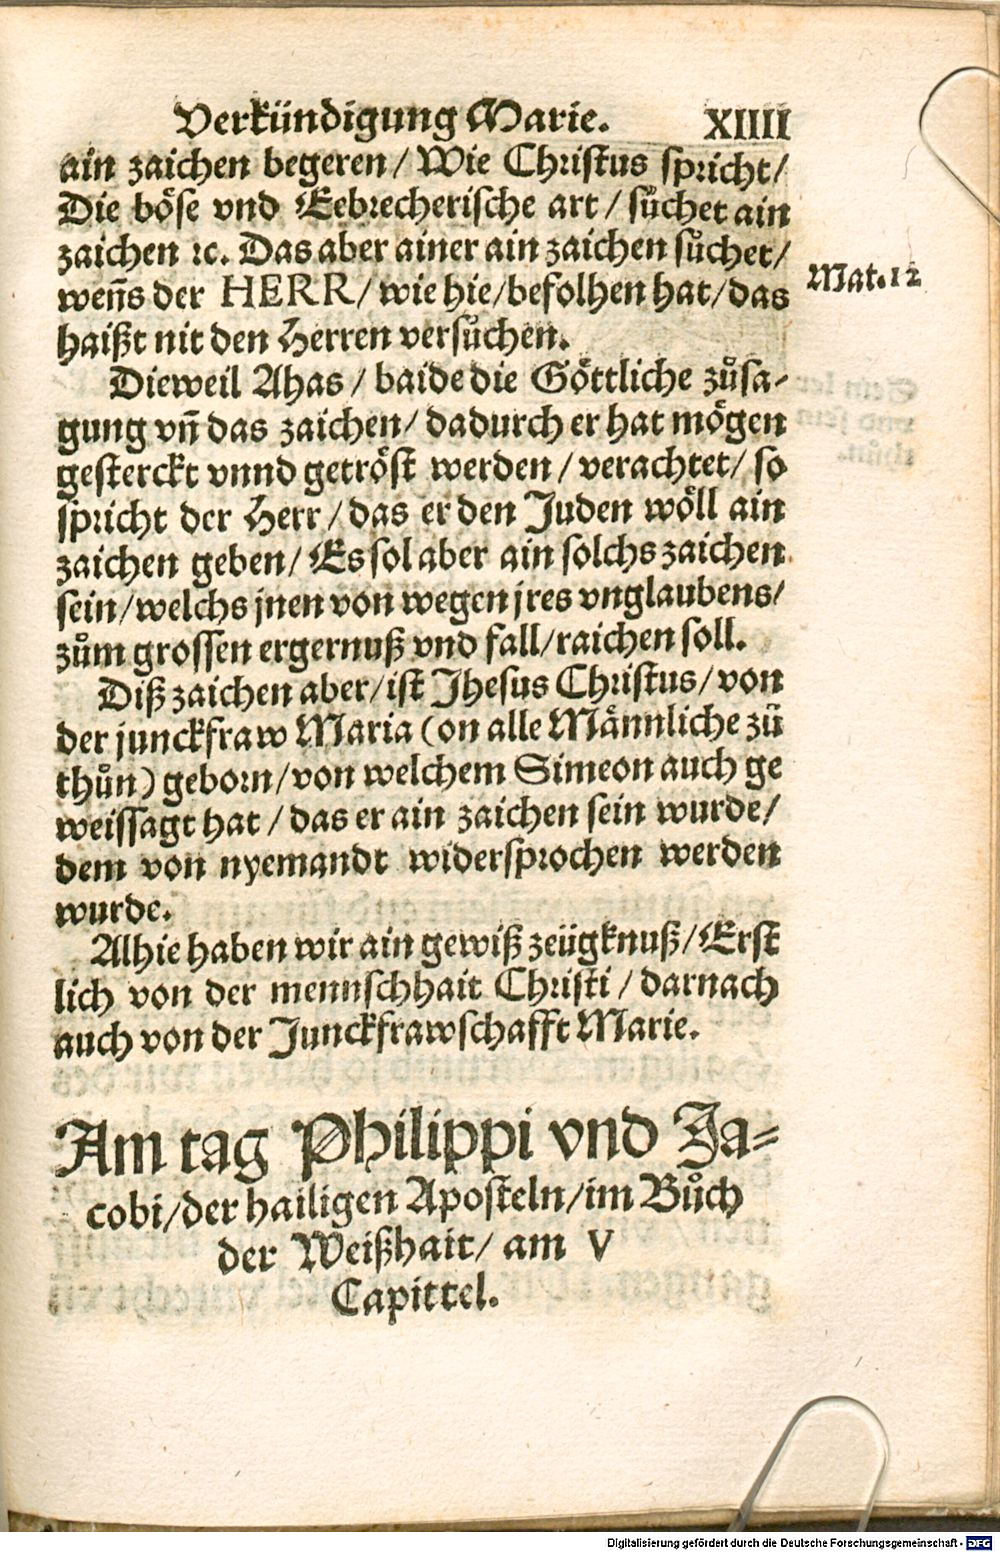 Verkündigung Marie. XIIII
ain zaichen begeren / Wie Christus spricht /
Die böse vnd Eebrecherische art / sůchet ain
zaichen ꝛc. Das aber ainer ain zaichen sůchet /
Mat. 12
wen̄s der HERR / wie hie / befolhen hat / das
haißt nit den Herren versůchen.
Dieweil Ahas / baide die Göttliche zůsa-
gung vn̄ das zaichen / dadurch er hat mögen
gesterckt vnnd getröst werden / verachtet / so
spricht der Herr / das er den Juden wöll ain
zaichen geben / Es sol aber ain solchs zaichen
sein / welchs jnen von wegen jres vnglaubens /
zům grossen ergernuß vnd fall / raichen soll.
Diß zaichen aber / ist Jhesus Christus / von
der junckfraw Maria (on alle Männliche zů
thůn) geborn / von welchem Simeon auch ge
weissagt hat / das er ain zaichen sein wurde /
dem von nyemandt widersprochen werden
wurde.
Alhie haben wir ain gewiß zeügknuß / Erst
lich von der mennschhait Christi / darnach
auch von der Junckfrawschafft Marie.
Am tag Philippi vnd Ja-
cobi / der hailigen Aposteln / im Bůch
der Weißhait / am V
Capittel.
Digitalisierung gefördert durch die Deutsche Forschungsgemeinschaft - DFG